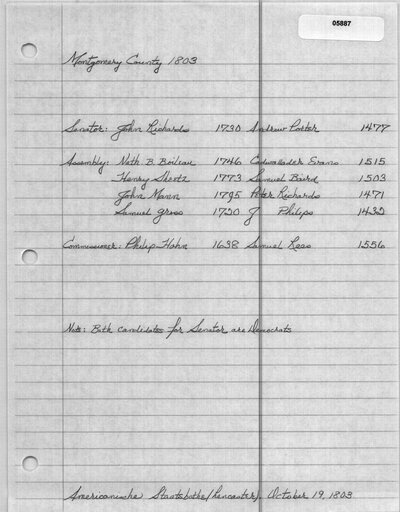 05887
Montgomery County 1803
Senator: John Richards 1730 Andrew Porter 1477
Assembly: Nath. B. Boileau 1746 Cadwallader Evans 1515
Henry Sheetz 1773 Samuel Baird 1503
John Mann 1795 Peter Richards 1471
Samuel Gross 1720 J Philips 1432
Commissioner: Philip Hahn 1638 Samuel Ross 1556
Note: Both candidates for Senator are Democrats
Americanische Staatsbothe (Lancaster), October 19, 1803